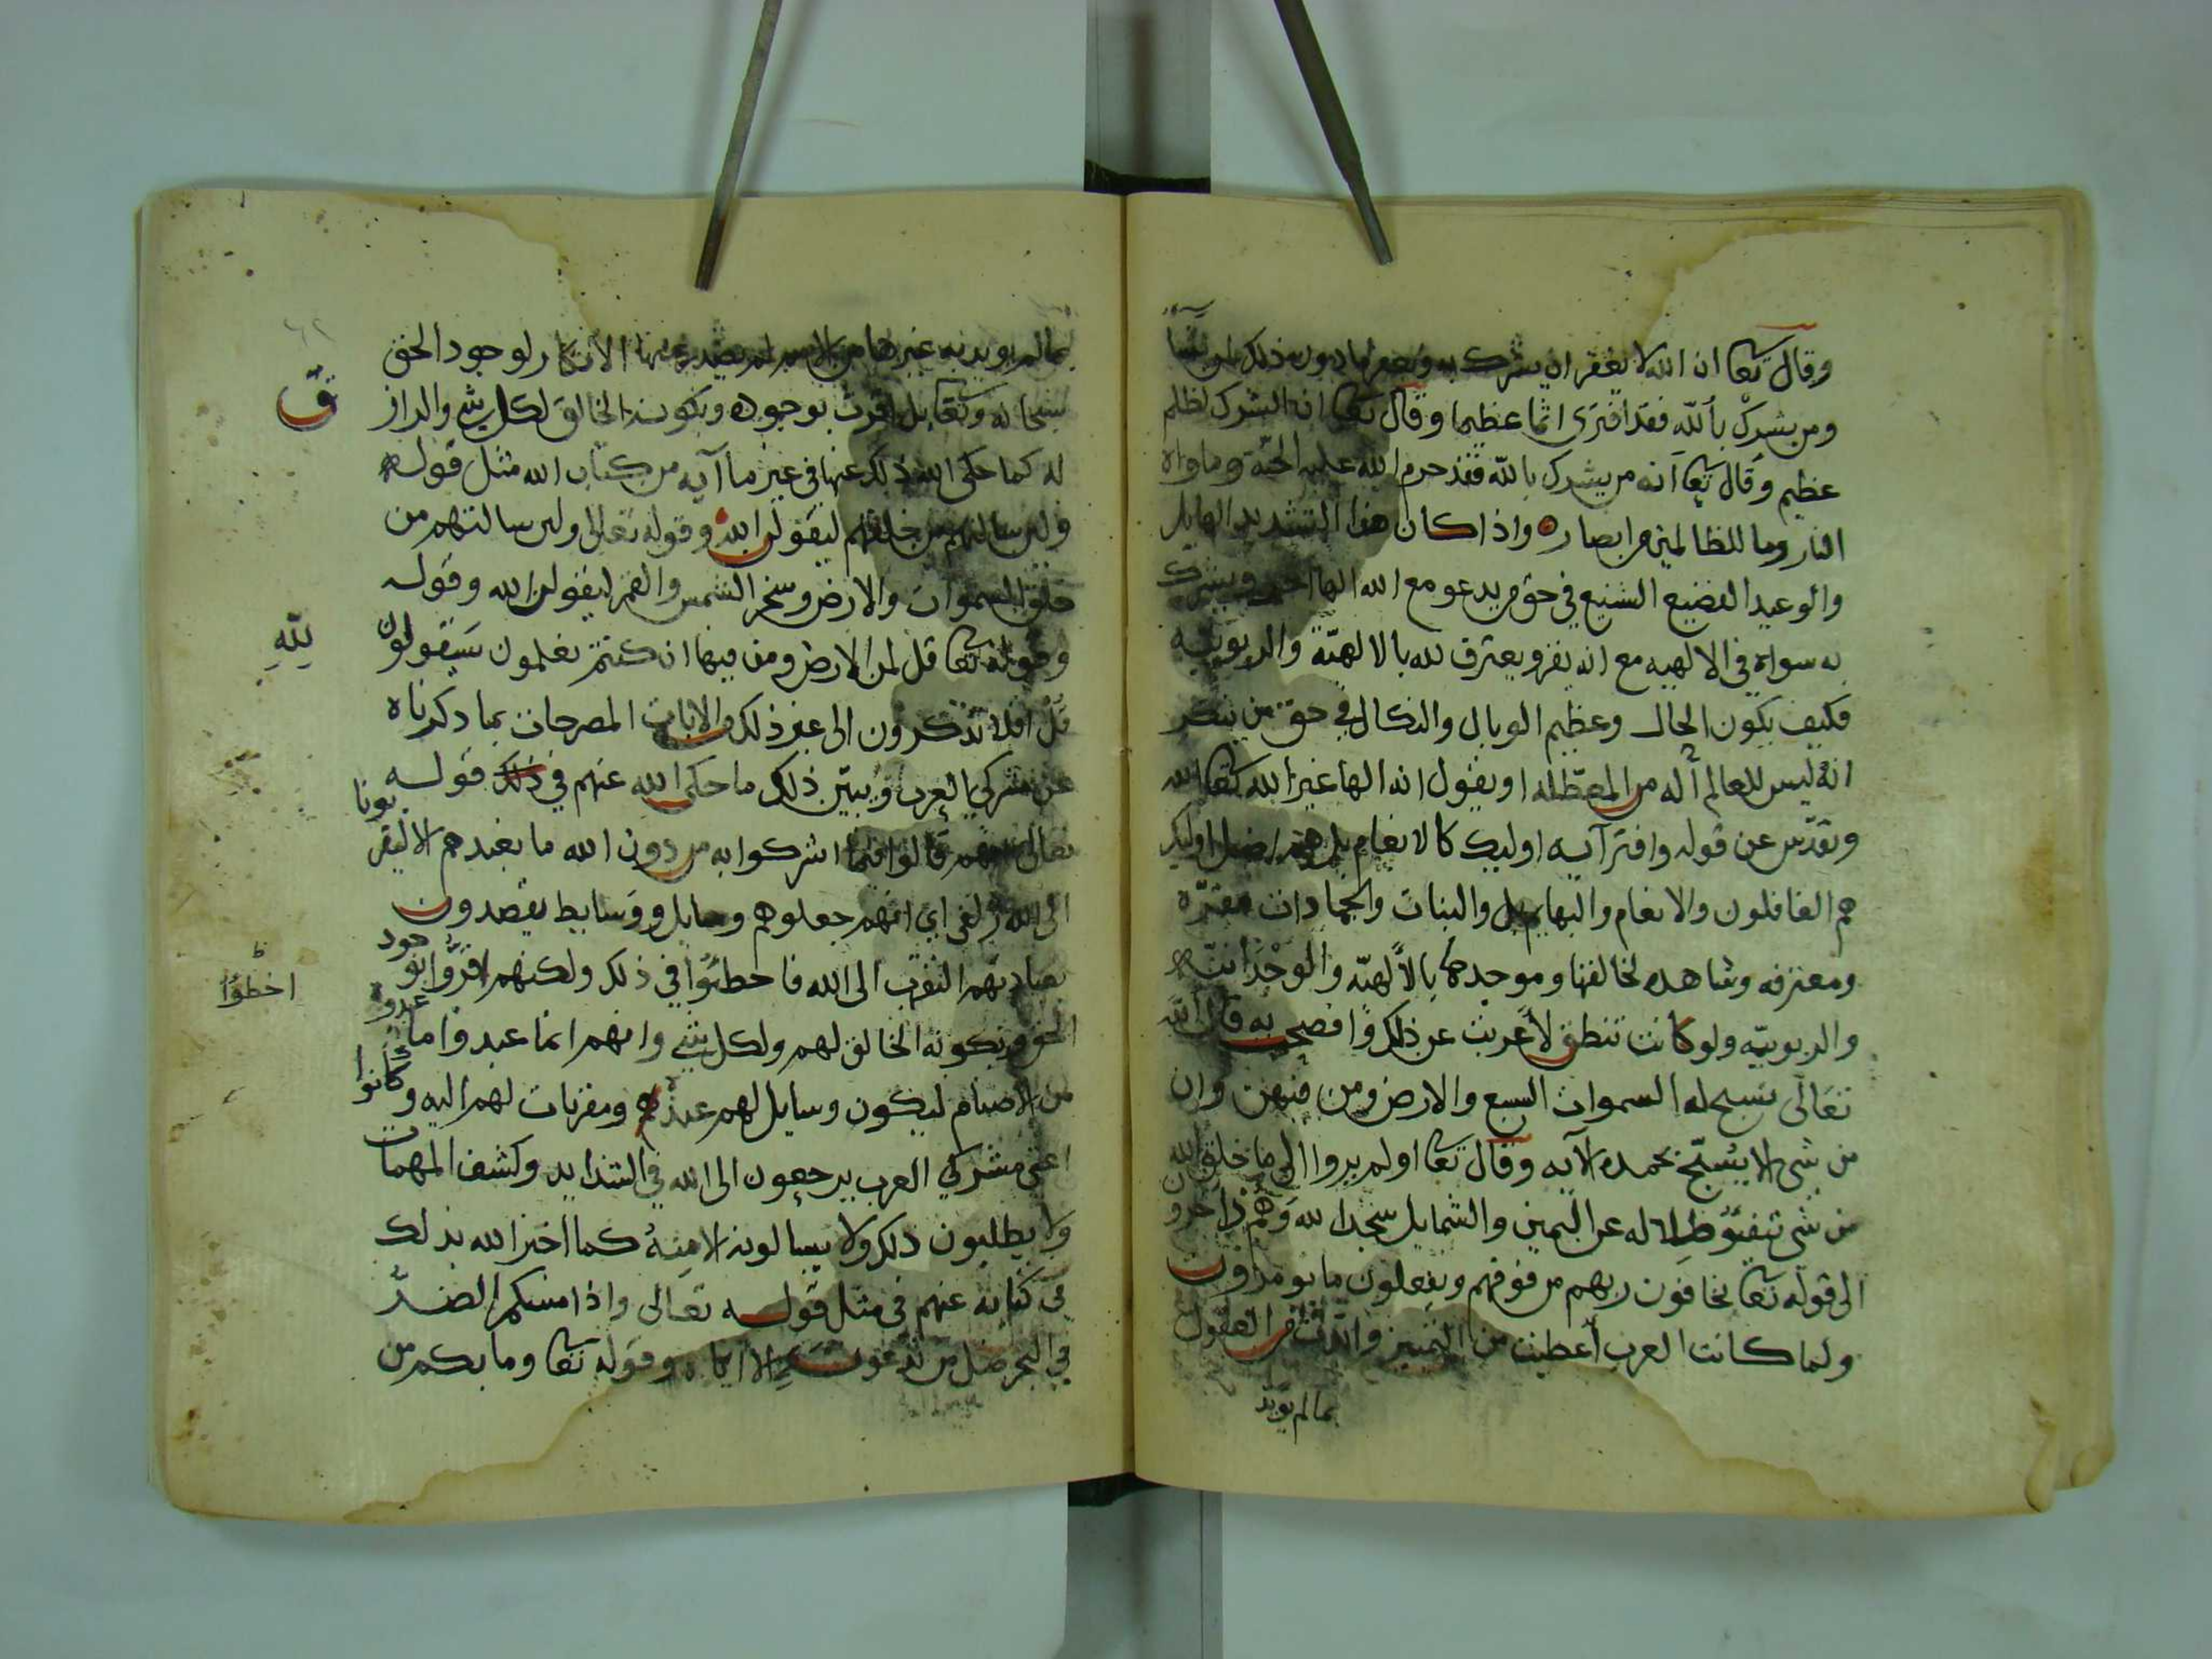 وقال تعا ان الله لا يغفر ان يشرك به ويغفر ما دون ذلك لمن يشا
ومن يشرك بالله فقد افترى اثما عظيما وقال تعا ان الشرك لظلم
عظيم وقال تعا انه من يشرك بالله فقد حرم الله عليه الجنة وماواه
النار وما للظالمين من انصار واذا كان هذا التشديد الهايل
والوعيد الفضيع الشنيع في حق من يدعو مع الله الها اخر ويشرك
به سواه في الالهيه مع انه يقر ويعترف لله بالالهيّة والربوبيه
فكيف يكون الحال وعظيم الوبال والنكال في حق من ينكر
انه ليس للعالم آله من المعطّله او يقول انه الها غير الله تعا الله
وتقدّس عن قوله وافترآيه اوليك كالانعام بل هم اضل اوليك
هم الغافلون والانعام والبهايم بل والنبات والجمادات مقرّه
ومعترفه وشاهده لخالقها وموجدها بالالهيّه والوحدانيّه
والربوبيّه ولو كانت تنطق لأعربت عن ذلك وافصحت به قال الله
تعالى تسبح له السموات السبع والارض ومن فيهن وان
من شى الا يسبّح بحمده الآيه وقال تعا اولم يروا الى ما خلق الله
من شى تتفيّؤ ظلاله عن اليمين والشمايل سجدا لله وهم داخرون
الى قوله تعا يخافون ربهم من فوقهم ويفعلون ما يومرون
ولما كانت العرب أعطيت من التمييز والعقول
بما لم يويد
بما لم يويد به غيرها من الامم لم يصدر عنها الانكار لوجود الحق
سبحانه وتعا بل اقرت بوجوده وبكونه الخالق لكل شي والراز
ق
له كما حكى الله ذلك عنها في غير ما آيه من كتاب الله مثل قوله
ولين سالتهم من خلقهم ليقولن الله وقوله تعالى ولين سالتهم من
خلق السموات والارض وسخر الشمس والقمر ليقولن الله وقوله
وقوله تعا قل لمن الارض ومن فيها ان كنتم تعلمون سيقولون
لِلّهِ
قل افلا تذكرون الى غير ذلك والايات المصرحات بما ذكرناه
عن مشركي العرب ويبيّن ذلك ما حكى الله عنهم في ذلك قوله
تعالى انهم قالوا فيما اشركوا به من دون الله ما نعبدهم الا ليقربونا
الى الله زلفى اي انهم جعلوهم وسايل ووسايط يقصدون
بعبادتهم التقرب الى الله فاخطئوا في ذلك ولكنهم اقرّوا بوجود
اخطؤا
الحق وبكونه الخالق لهم ولكل شي وانهم انما عبدوا ما عبدوه
من الاصنام ليكون وسايل لهم عنده ومقربات لهم اليه وكانوا
اعني مشركي العرب يرجعون الى الله في الشدايد وكشف المهمات
ولا يطلبون ذلك ولا يسالونه الا منه كما اخبر الله بذلك
في كتابه عنهم في مثل قوله تعالى واذا مسكم الضرّ
في البحر ضل من تدعون الا اياه وقوله تعا وما بكم من